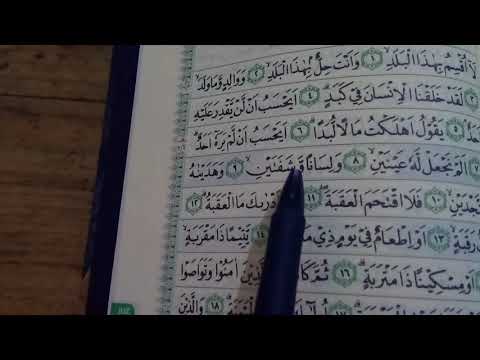 لَآ اُقْسِمُ بِهٰذَا الْبَلَدِۙ ١ وَاَنْتَ حِلٌّۢ بِهٰذَا الْبَلَدِۙ ٢ وَوَالِدٍ وَّمَا وَلَدَۙ
٣ لَقَدْ خَلَقْنَا الْاِنْسَانَ فِيْ كَبَدٍۗ ٤ اَيَحْسَبُ اَنْ لَّنْ يَّقْدِرَ عَلَيْهِ
اَحَدٌ ٥ يَقُوْلُ اَهْلَكْتُ مَالًا لُّبَدًاۗ ٦ اَيَحْسَبُ اَنْ لَّمْ يَرَهٗٓ اَحَدٌۗ
٧ اَلَمْ نَجْعَلْ لَّهٗ عَيْنَيْنِۙ ٨ وَلِسَانًا وَّشَفَتَيْنِۙ ٩ وَهَدَيْنٰهُ
النَّجْدَيْنِۙ ١٠ فَلَا اقْتَحَمَ الْعَقَبَةَ ١١ اَدْرٰىكَ مَا الْعَقَبَةُۗ ١٢
رَقَبَةٍۙ ١٣ اَوْ اِطْعَامٌ فِيْ يَوْمٍ ذِيْ ١٤ يَّتِيْمًا ذَا مَقْرَبَةٍۙ
اَوْ مِسْكِيْنًا ذَا مَتْرَبَةٍۗ ١٦ ثُمَّ كَانَ اٰمَنُوْا وَتَوَاصَوْا
١٧ ١٨ وَالَّذِيْنَ